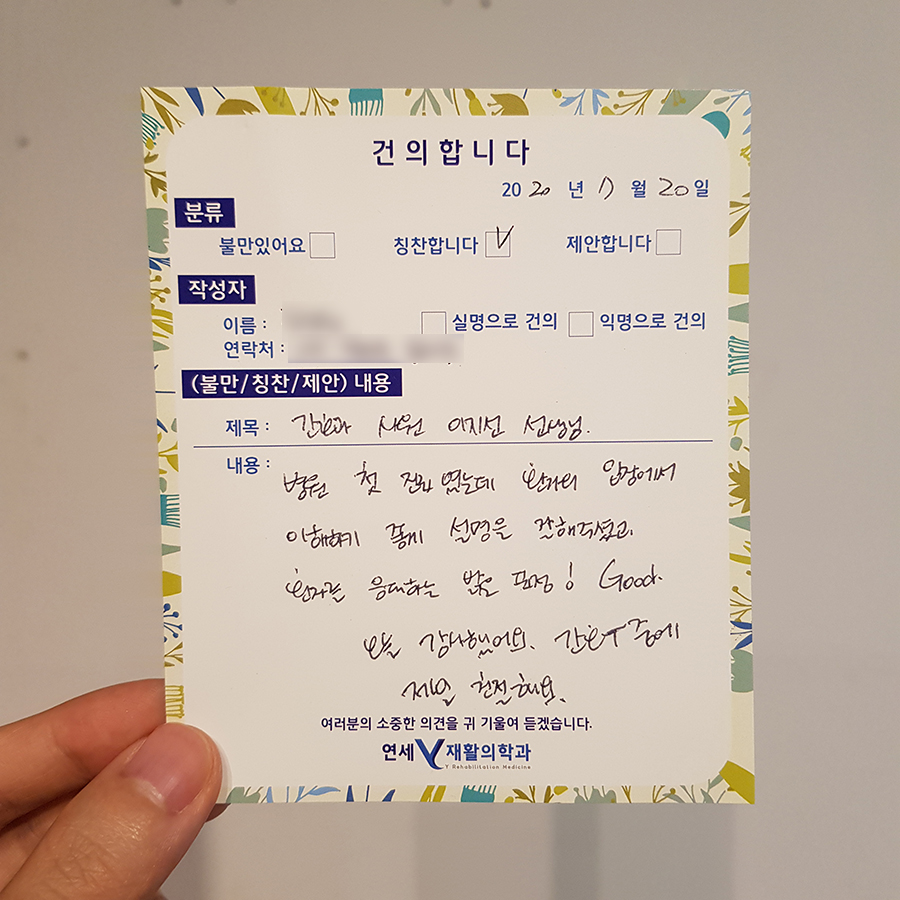 건의합니다
2020년 7월 20일
분류
불만있어요 칭찬합니다 V 제안합니다
작성자
이름 : 실명으로 건의 익명으로 건의
연락처 :
(불만/칭찬/제안) 내용
제목 : 간호과 사원 이지선 선생님.
내용 : 병원 첫 진료였는데 환자의 입장에서
이해하기 쉽게 설명을 잘해주셨고
환자를 응대하는 밝은 표정! Good.
오늘 감사했어요. 간호사 중에
제일 친절해요.
여러분의 소중한 의견을 귀 기울여 듣겠습니다.
연세 Y 재활의학과
Y Rehabilitation Medicine